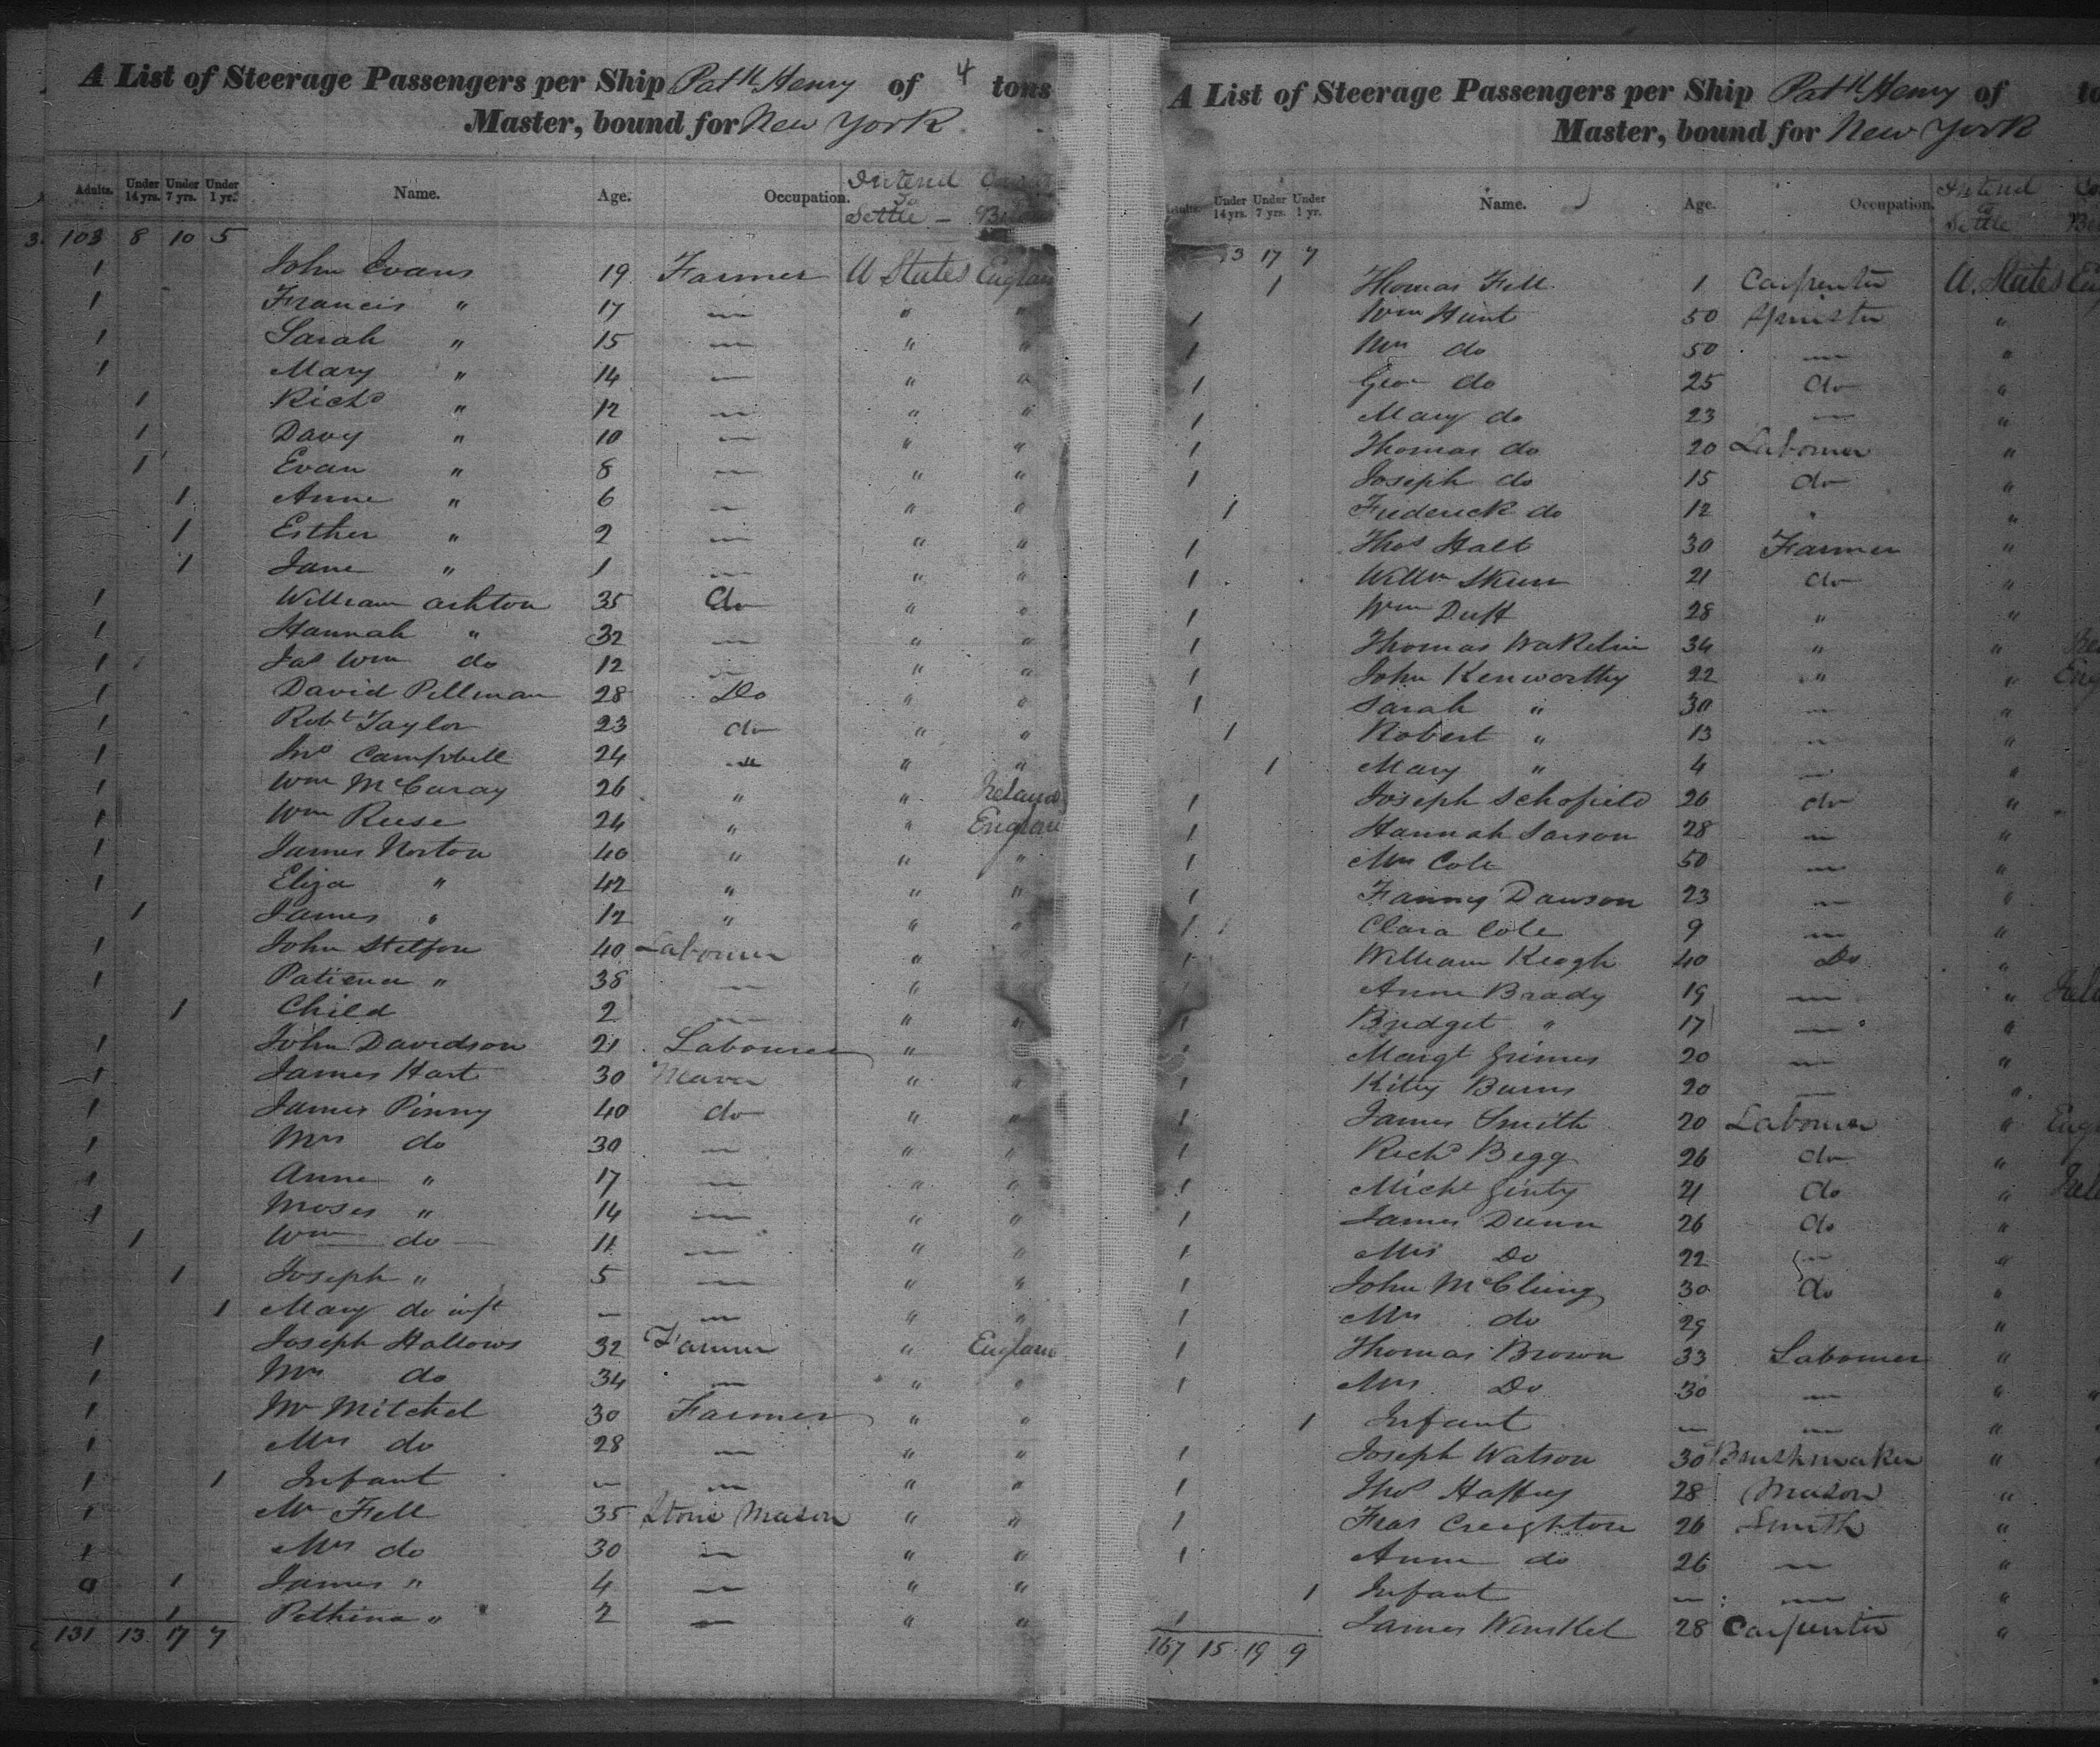 A List of Steerage Passengers per Ship Patk Henry of 4 tons
Master, bound for New York
Adults. Under 14 yrs. Under 7 yrs. Under 1 yr. Name. Age. Occupation. Intend To Settle
103 8 10 5
1 John Evans 19 Farmer U States England
1 Francis " 17 — " "
1 Sarah " 15 — " "
1 Mary " 14 — " "
1 Richd " 12 — " "
1 Davy " 10 — " "
1 Evan " 8 — " "
1 Anne " 6 — " "
1 Esther " 2 — " "
1 Jane " 1 — " "
1 William Ashton 35 do " "
1 Hannah " 32 — " "
1 Jas Wm do 12 — " "
1 David Pillman 28 Do " "
1 Robt Taylor 23 do " "
1 Jno Campbell 24 " " "
1 Wm McCaray 26 " " Ireland
1 Wm Reese 24 " " England
1 James Norton 40 " " "
1 Eliza " 42 " " "
1 James " 12 " " "
1 John 40 Labourer "
1 Patience " 38 — "
1 Child 2 — " "
1 John Davidson 21 Labourer "
1 James Hart 30 " "
1 James Pinny 40 do " "
1 Mrs do 30 — " "
1 Anne " 17 — " "
1 Moses " 14 — " "
1 Wm do 11 — " "
1 Joseph " 5 — " "
1 Mary do inft — — " "
1 Joseph Hallows 32 Farmer " England
1 Mrs do 34 — " "
1 Mr Mitchel 30 Farmer " "
1 Mrs do 28 — " "
1 1 Infant — — " "
1 Mr Fell 35 Stone Mason " "
1 Mrs do 30 — " "
1 James " 4 — " "
1 Pethina " 2 — " "
131 13 17 7
A List of Steerage Passengers per Ship Patk Henry of
Master, bound for New York
Adults. Under 14 yrs. Under 7 yrs. Under 1 yr. Name. Age. Occupation. Intend To Settle
13 17 7
1 Thomas Fell 1 Carpenter U. States
1 Wm Hunt 50 "
1 Mrs do 50 — "
1 Geo do 25 do "
1 Mary do 23 — "
1 Thomas do 20 Labourer "
1 Joseph do 15 do "
1 Frederick do 12 " "
1 Thos Halt 30 Farmer "
1 Willm Skun 21 do "
1 Wm Duff 28 " "
1 Thomas Wakelin 34 " "
1 John Kenworthy 22 " "
1 Sarah " 30 — "
1 Robert " 13 — "
1 Mary " 4 — "
1 Joseph Schofield 26 do "
1 Hannah Sarson 28 — "
1 Mrs Cole 50 — "
1 Fanny Dawson 23 — "
1 Clara Cole 9 — "
1 William Keogh 40 Do "
Anne Brady 19 — "
1 Bridget " 17 — "
Margt Grimes 20 — "
1 Kitty Burns 20 — "
1 James Smith 20 Labourer "
1 Richd Begg 26 do "
1 Michl Ginty 21 do "
1 James Dunn 26 do "
1 Mrs Do 22 — "
1 John McClung 30 do "
1 Mrs do 29 "
1 Thomas Brown 33 Labourer "
1 Mrs Do 30 — "
1 Infant — — "
1 Joseph Watson 30 Brushmaker "
1 Thos Haffey 28 Mason "
1 Fras Creighton 26 Smith "
1 Anne do 26 — "
1 Infant — — "
1 James Winskel 28 Carpenter "
167 15 19 9